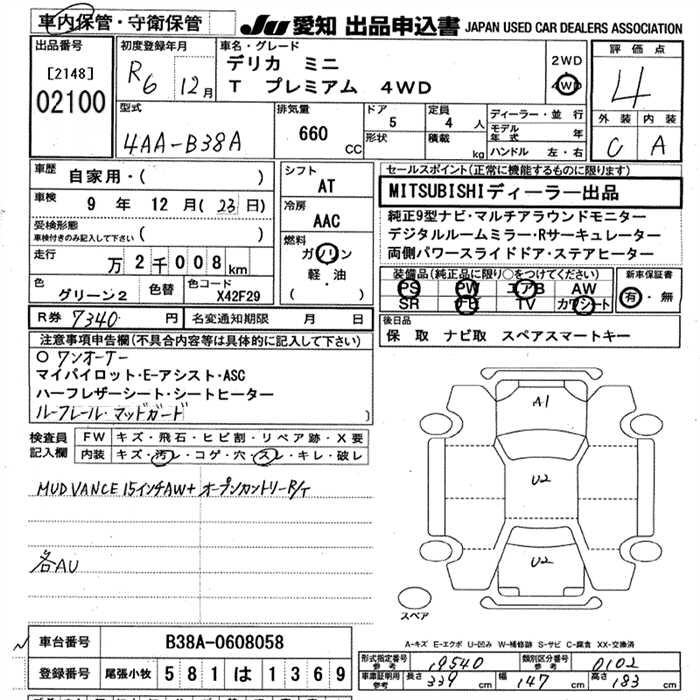 車内保管・守衛保管
JU 愛知 出品申込書 JAPAN USED CAR DEALERS ASSOCIATION
出品番号
[2148]
02100
初度登録年月
R6 12月
車名・グレード
デリカ ミニ
T プレミアム 4WD
2WD
4WD
評価点
4
外装 内装
C A
型式
4AA-B38A
排気量
660 CC
ドア 5
形状
定員 4 人
積載 kg
ディーラー・並行
モデル年式 年
ハンドル 左・右
車歴
自家用・( )
車検
9 年 12 月 (23 日)
受検形態
車検付きのみ記入して下さい ( )
走行
万 2 千 008 km
色
グリーン2
色替
色コード
X42F29
シフト
AT
冷房
AAC
燃料
ガソリン
軽・油
( )
セールスポイント(正常に機能するものに限ります)
MITSUBISHIディーラー出品
純正9型ナビ・マルチアラウンドモニター
デジタルルームミラー・Rサーキュレーター
両側パワースライドドア・ステアヒーター
装備品(純正品に限り○をつけてください)
PS PW エアB AW
SR ナビ TV カワシート
新車保証書
有・無
R券 7340 円
名変通知期限 月 日
後日品
保 取 ナビ取 スペアスマートキー
注意事項申告欄(不具合内容等は具体的に記入して下さい)
○ ワンオーナー
マイパイロット・E-アシスト・ASC
ハーフレザーシート・シートヒーター
ルーフレール・マッドガード )
検査員記入欄
FW キズ・飛石・ヒビ割・リペア跡・X要
内装 キズ・汚レ・コゲ・穴・スレ・キレ・破レ
MUD VANCE 15インチAW+オープンカントリーR/T
各AU
A1
U2
U2
スペア
A-キズ E-エクボ U-凹み W-補修跡 S-サビ C-腐食 XX-交換済
車台番号
B38A-0608058
登録番号
尾張小牧 581 は 1369
形式指定番号 参考 19540
類別区分番号 参考 0102
車庫証明用 参考 長さ 339 cm 幅 147 cm 高さ 183 cm